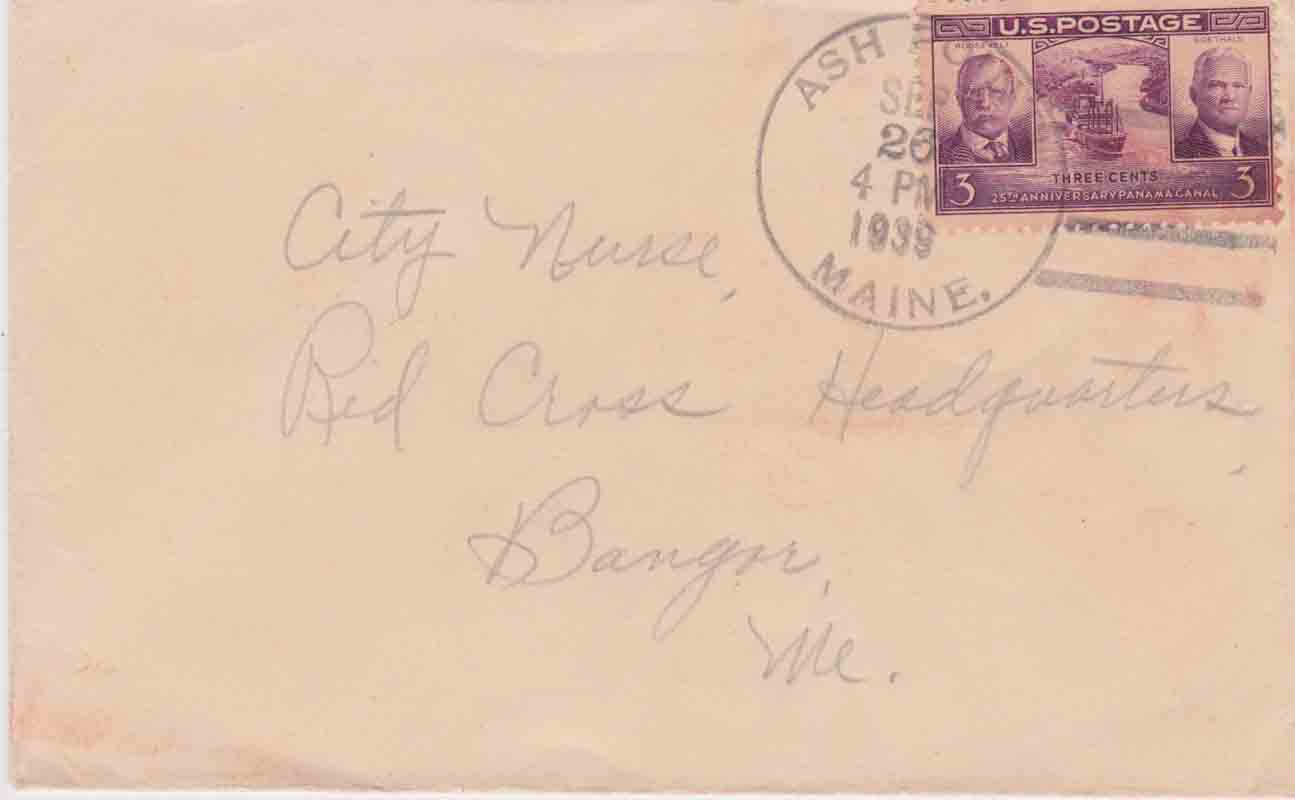 U.S. POSTAGE
ROOSEVELT GOETHALS
3 THREE CENTS 3
25TH ANNIVERSARY PANAMA CANAL
ASH
SEP
26
4 PM
1939
MAINE.
City Nurse,
Red Cross Headquarters,
Bangor,
Me.